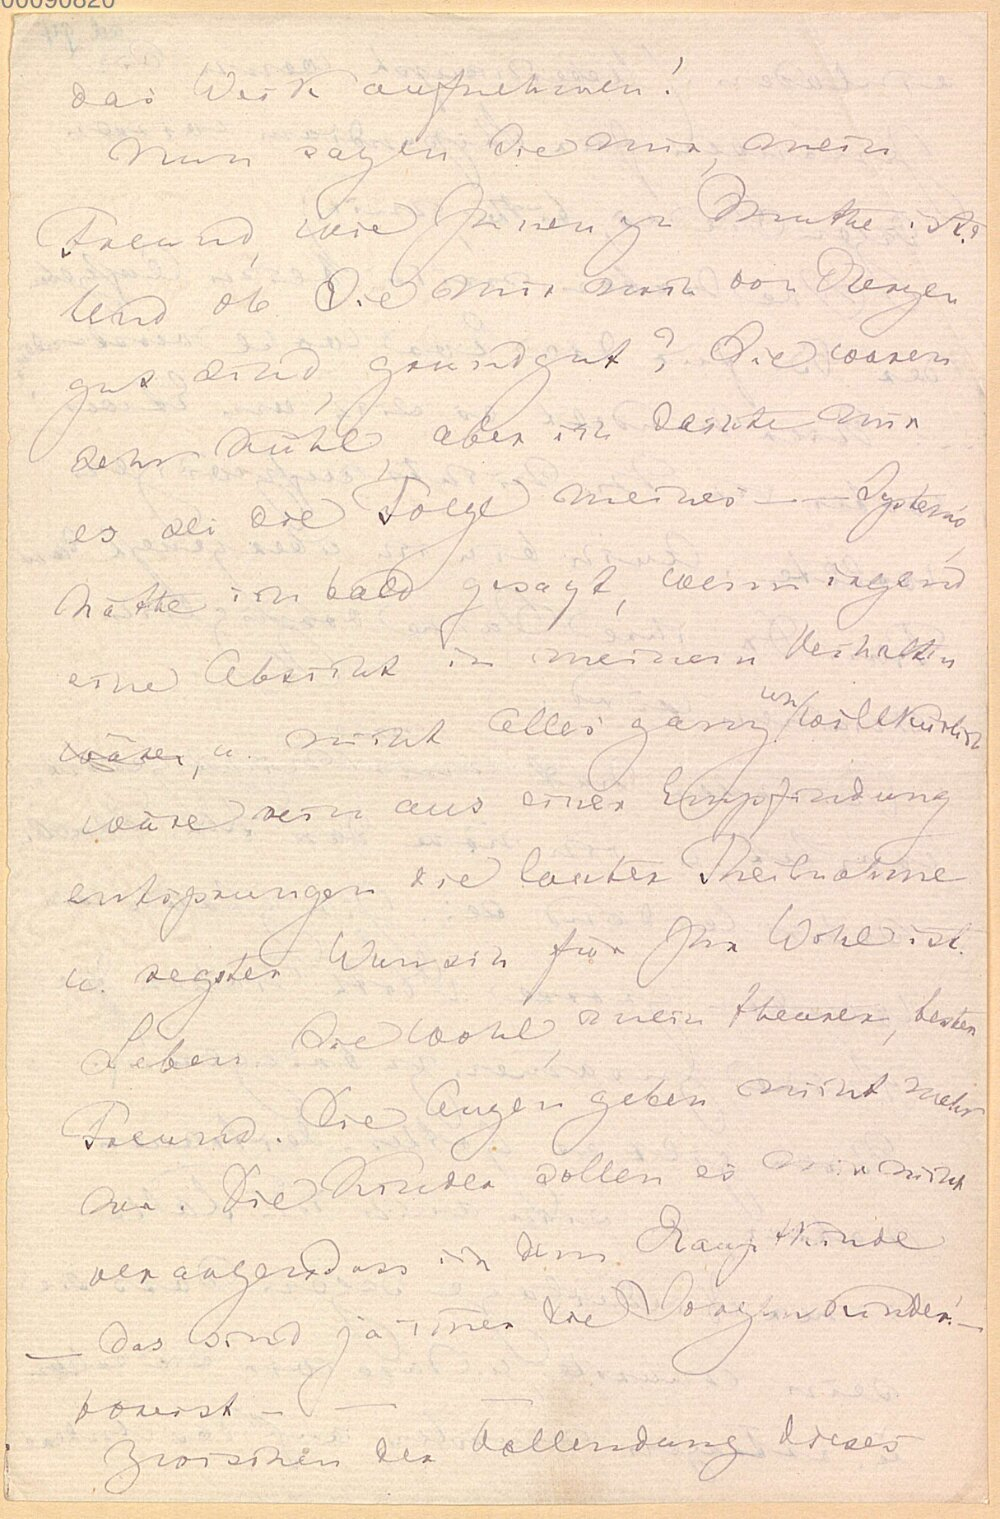 00090820
das Werk aufnehmen!
Nun sagen Sie mir, mein
Freund, wie Ihnen zu Muthe ist?
Und ob Sie mir noch von Herzen
gut sind, grundgut? Sie waren
sehr kühl, aber ich dachte mir
es sei die Folge meines — – Systems,
hätte ich bald gesagt, wenn irgend
eine Absicht in meinem Verhalten
wäre, u. nicht Alles ganz un/willkürlich
wäre rein aus einer Empfindung
entsprungen die lauter Theilnahme
u. regster Wunsch für Ihr Wohl ist.
Leben Sie wohl, mein theurer, bester
Freund. Die Augen geben nicht mehr
her. Die Kinder sollen es mir nicht
verargen dass ich dem Hauptkinde
— das sind ja immer die Sorgenkinder! —
vorerst — — —
Zwischen der Vollendung dieses